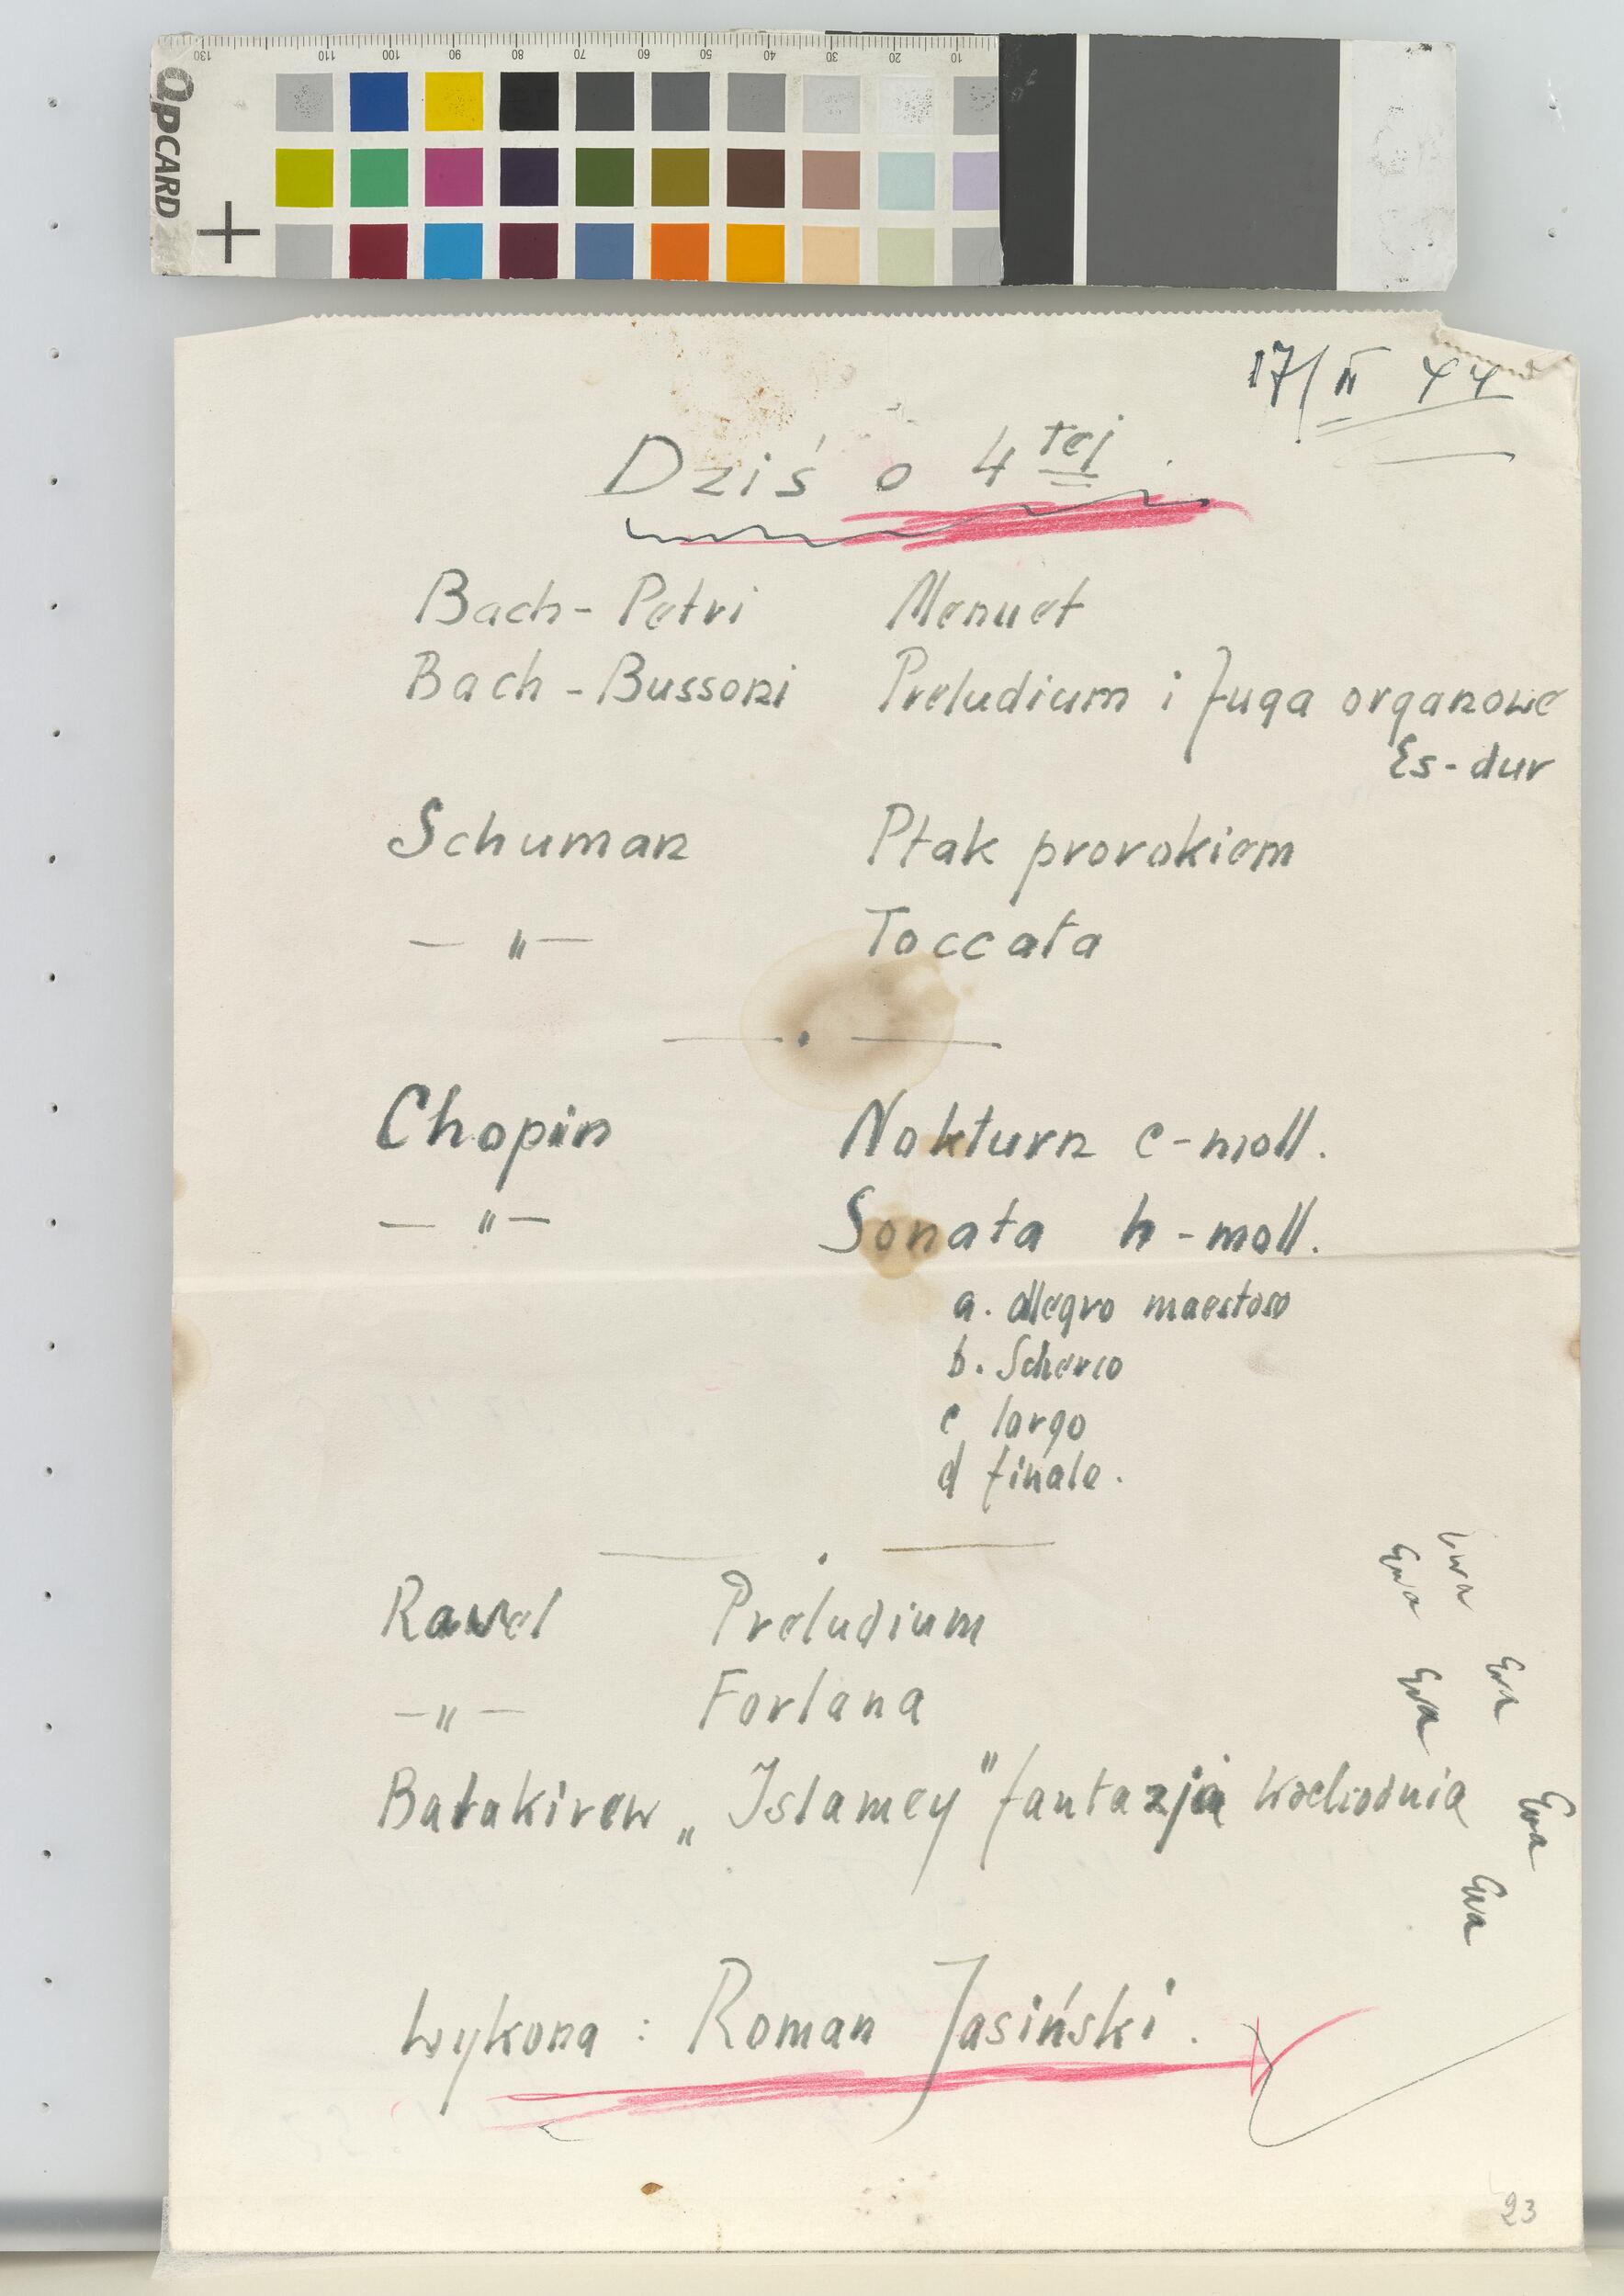 130 110 100 90 80 70 60 50 40 30 20 10
QPCARD
17/II 44
Dziś o 4 tej
Bach - Petri Menuet
Bach - Bussoni Preludium i fuga organowe
Es - dur
Schuman Ptak prorokiem
— " — Toccata
Chopin Nokturn c-moll.
— " — Sonata h - moll.
a. allegro maestoso
b. Scherco
c largo
d finale.
Ewa
Ewa
Ravel Preludium
— " — Forlana
Ewa
Ewa
Bałakirew „Islamey" fantazja wschodnia
Ewa
Ewa
Wykona : Roman Jasiński.
23